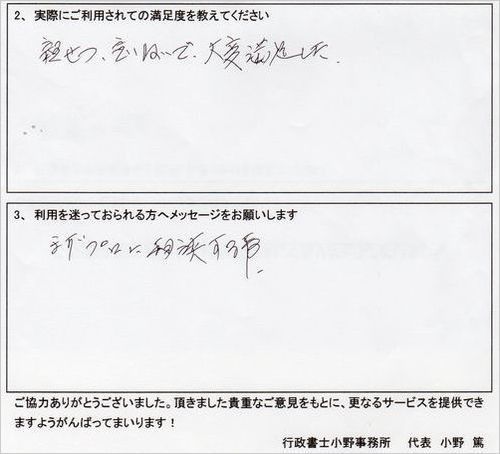 2、実際にご利用されての満足度を教えてください
親せつ、ていねいで、大変満足した.
3、利用を迷っておられる方へメッセージをお願いします
まずプロに相談する事
ご協力ありがとうございました。頂きました貴重なご意見をもとに、更なるサービスを提供でき
ますようがんばってまいります！
行政書士小野事務所 代表 小野 篤